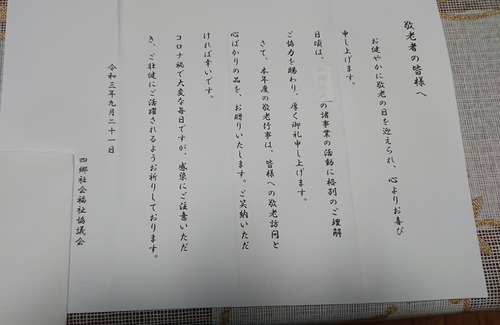 敬老者の皆様へ
お健やかに敬老の日を迎えられ、心よりお喜び
申し上げます。
日頃は、
の諸事業の活動に格別のご理解
ご協力を賜わり、厚く御礼申し上げます。
さて、本年度の敬老行事は、皆様への敬老訪問と
心ばかりの品を、お贈りいたします。ご笑納いただ
ければ幸いです。
コロナ禍で大変な毎日ですが、感染にご注意いただ
き、ご壮健にご活躍されるようお祈りしております。
令和三年九月二十一日
四郷社会福祉協議会